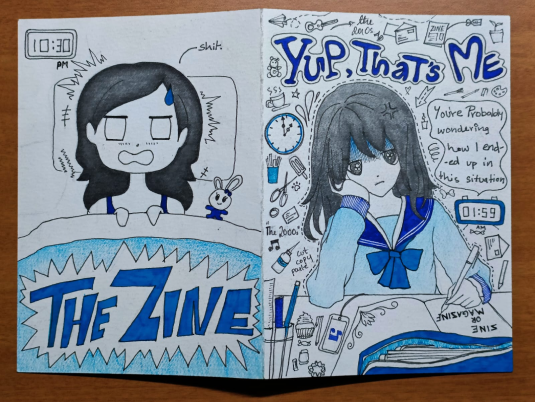 10:30
AM
shit.
THE ZINE
the
YUP, THAT'S ME
ZINE
You're Probably
wondering
how I end-
ed up in
this situation
01:59
AM
"The 2000s"
cut
copy
paste
ZINE
OR
MAGAZINE